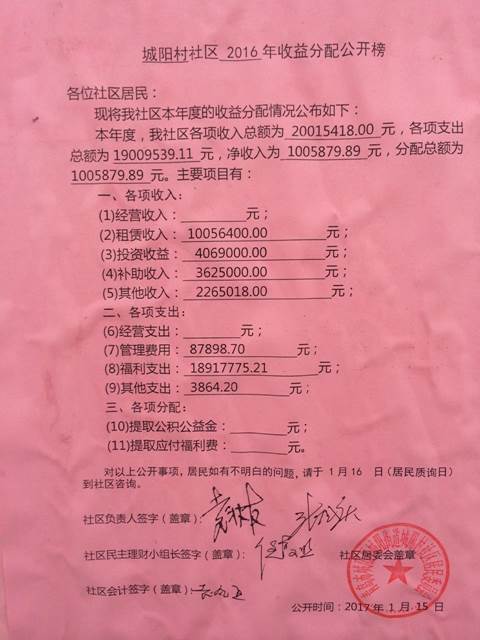 城阳村社区 2016 年收益分配公开榜
各位社区居民：
现将我社区本年度的收益分配情况公布如下：
本年度，我社区各项收入总额为 20015418.00 元，各项支出
总额为 19009539.11 元，净收入为 1005879.89 元，分配总额为
1005879.89 元。主要项目有：
一、各项收入：
(1)经营收入：________元；
(2)租赁收入：10056400.00 元；
(3)投资收益：4069000.00 元；
(4)补助收入：3625000.00 元；
(5)其他收入：2265018.00 元；
二、各项支出：
(6)经营支出：________元；
(7)管理费用：87898.70 元；
(8)福利支出：18917775.21 元；
(9)其他支出：3864.20 元；
三、各项分配：
(10)提取公积公益金：________元；
(11)提取应付福利费：________元。
对以上公开事项，居民如有不明白的问题，请于 1 月 16 日（居民质询日）
到社区咨询。
社区负责人签字（盖章）：
社区民主理财小组长签字（盖章）：
社区居委会盖章
社区会计签字（盖章）：
公开时间：2017 年 1 月 15 日